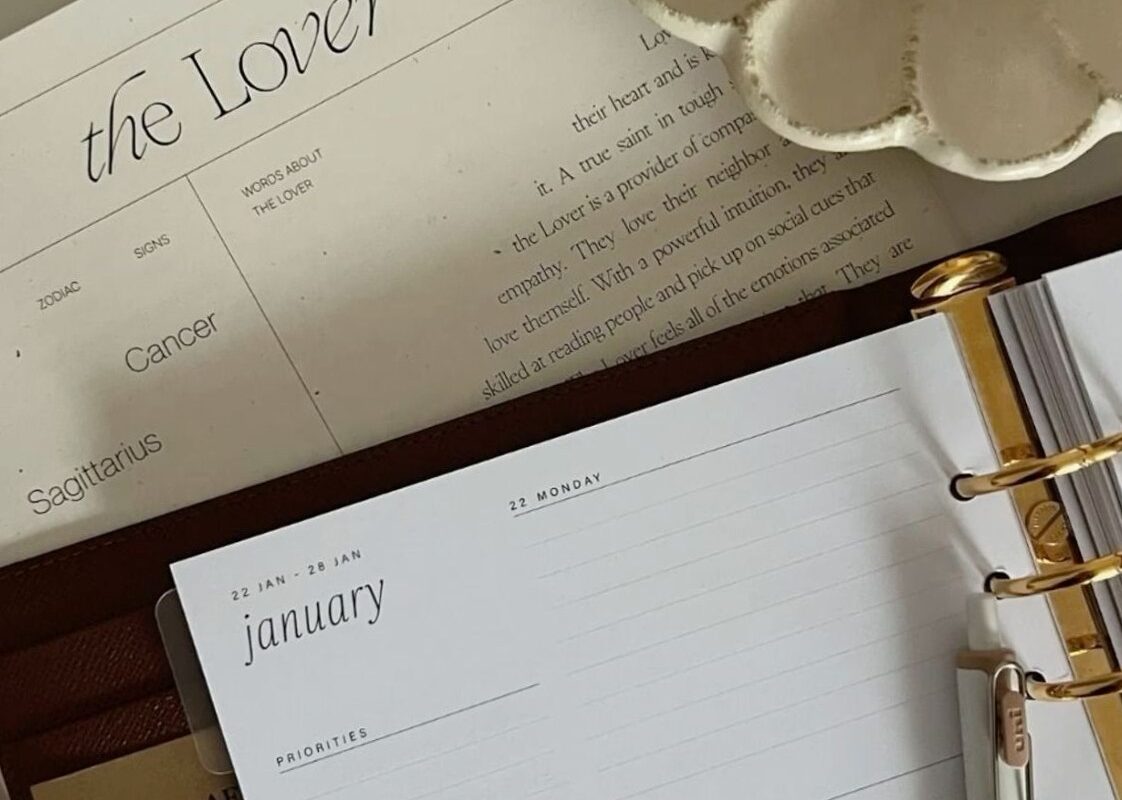 the Lover
ZODIAC
SIGNS
Cancer
Sagittarius
WORDS ABOUT
THE LOVER
their heart and is
it. A true saint in tough
the Lover is a provider of
empathy. They love their neighbor
love themself. With a powerful intuition, they
skilled at reading people and pick up on social cues that
Lover feels all of the emotions associated
that. They are
22 JAN - 28 JAN
january
PRIORITIES
22 MONDAY
uni